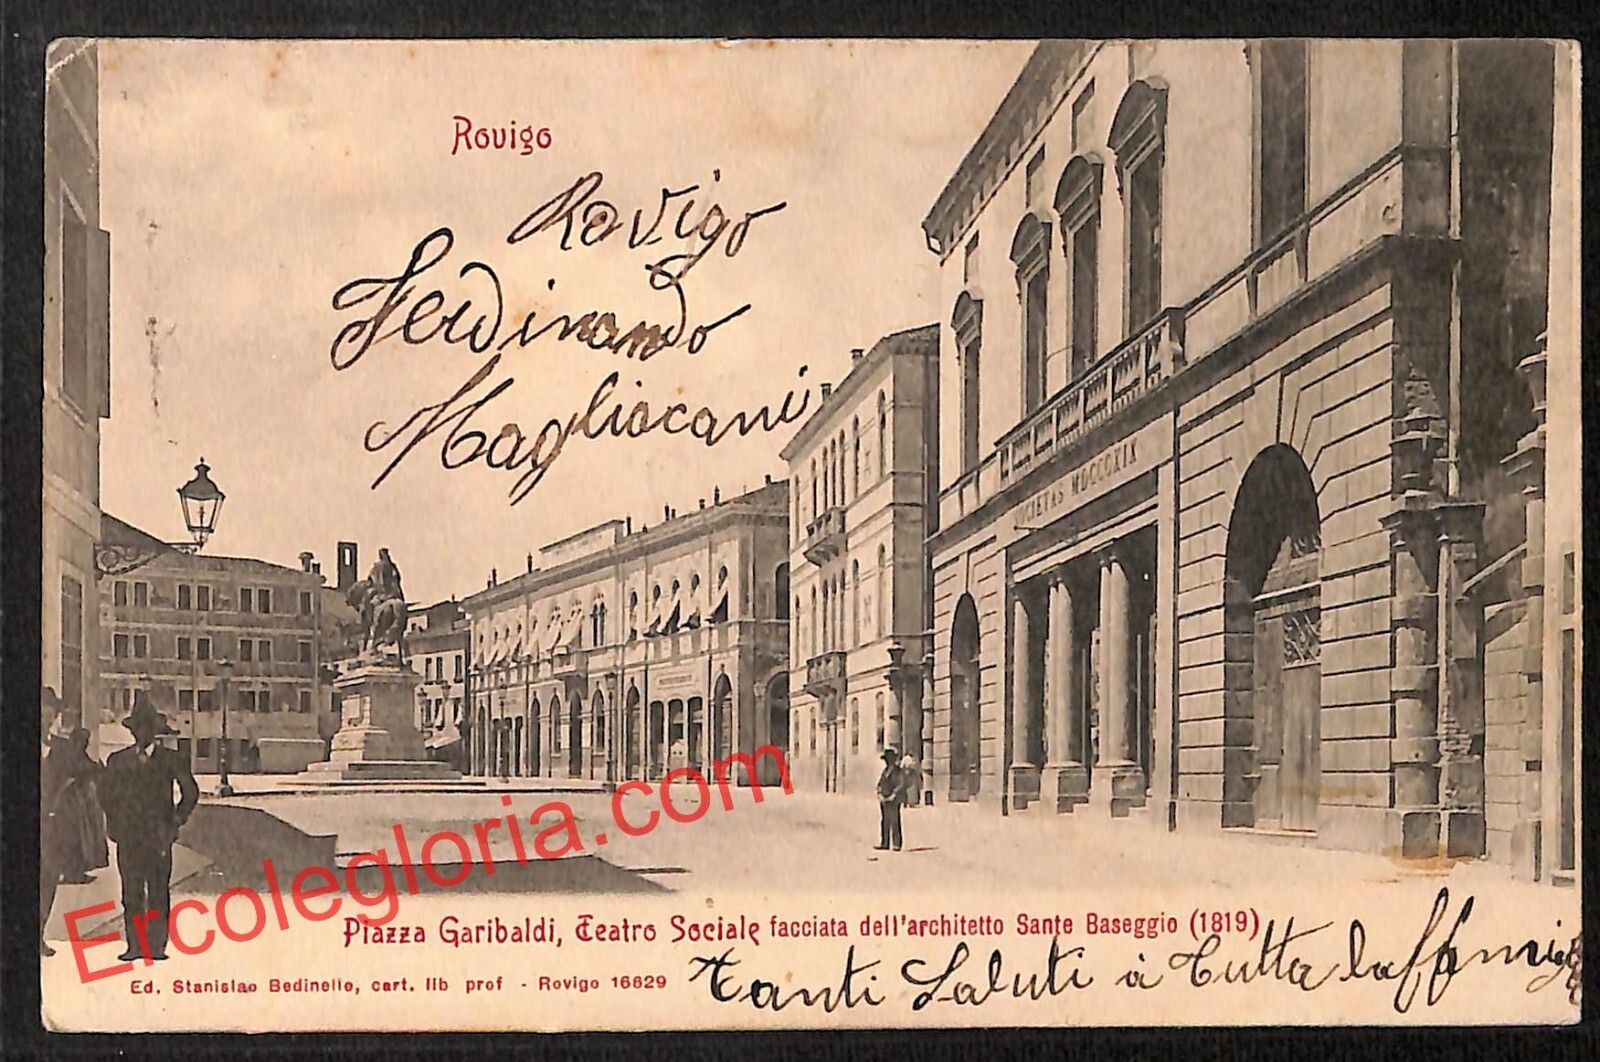 Rovigo
Rovigo
Ferdinando
Magliocani
SOCIETAS MDCCCXIX
Ercolegloria.com
Piazza Garibaldi, Teatro Sociale facciata dell'architetto Sante Baseggio (1819)
Tanti Saluti à Tutta la
Ed. Stanislao Bedinello, cart. lib prof - Rovigo 16629